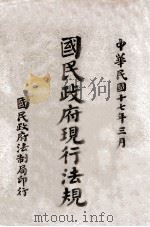 中華民國十七年三月
國民政府現行法規
國民政府法制局印行
mtoou.info